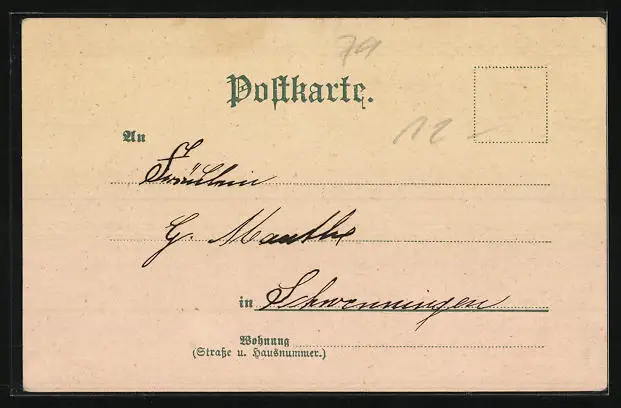 79
Postkarte.
12 -
An
Fräulein
G. Manthe
in Schwenningen
Wohnung
(Straße u. Hausnummer.)